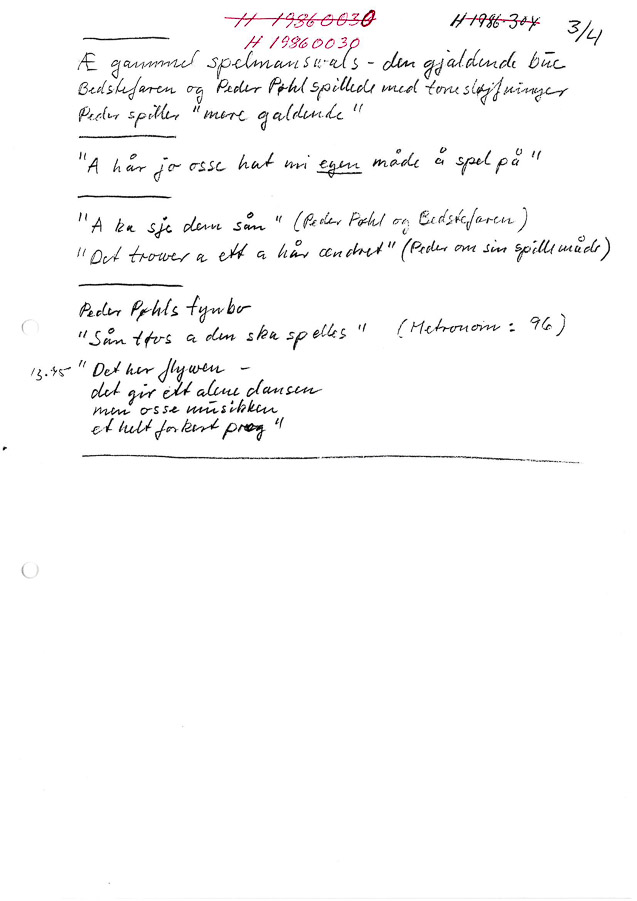 H 19860030 H 1986-304 3/4
H 19860030
Æ gammel spelmansvals - den gjaldende bue
Bedstefaren og Peder Pøhl spillede med tonesløjfninger
Peder spiller "mere galdende"
"A hår jo osse hat mi egen måde å spel på"
"A ka sje dem sån" (Peder Pøhl og Bedstefaren)
"Det trower a ett a hår ændret" (Peder om sin spillemåde)
Peder Pøhls fynbo
"Sån tøs a den ska spelles" (Metronom = 96)
13.45 "Det her flywen -
det gir ett alene dansen
men osse musikken
et helt forkert præg"